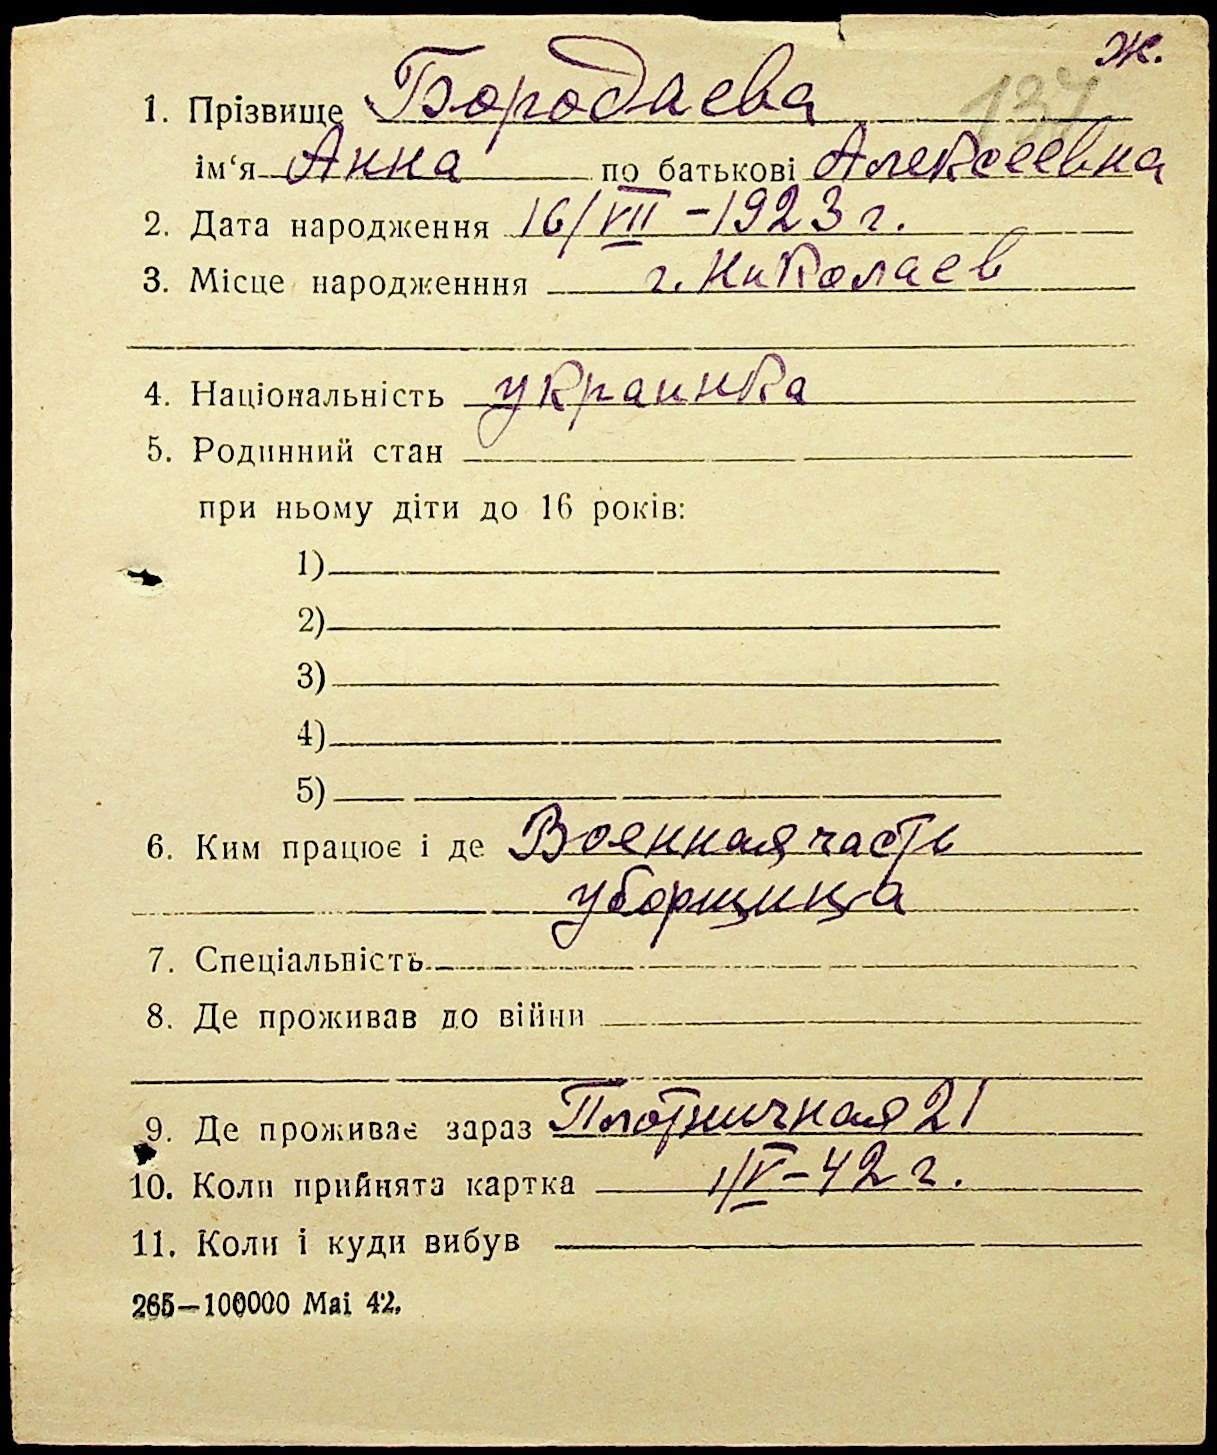 ж.
137
1. Прізвище Бородаева
ім‘я Анна по батькові Алексеевна
2. Дата народження 16/VII -1923 г.
3. Місце народженння г. Николаев
4. Національність украинка
5. Родинний стан
при ньому діти до 16 років:
1)
2)
3)
4)
5)
6. Ким працює і де Военная часть
уборщица
7. Спеціальність
8. Де проживав до війни
9. Де проживає зараз Плотничная 21
10. Коли прийнята картка 1/V-42 г.
11. Коли і куди вибув
265—100000 Mai 42.